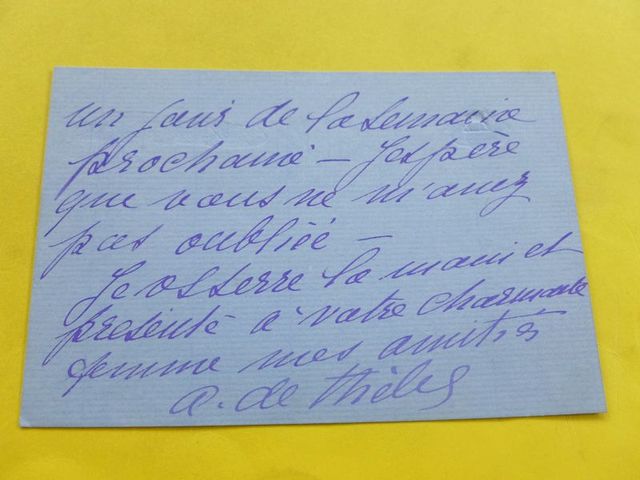 un jour de la semaine
prochaine – J'espère
que vous ne m'avez
pas oubliée –
Je vs serre la main et
présente à votre charmante
femme mes amitiés
a. de